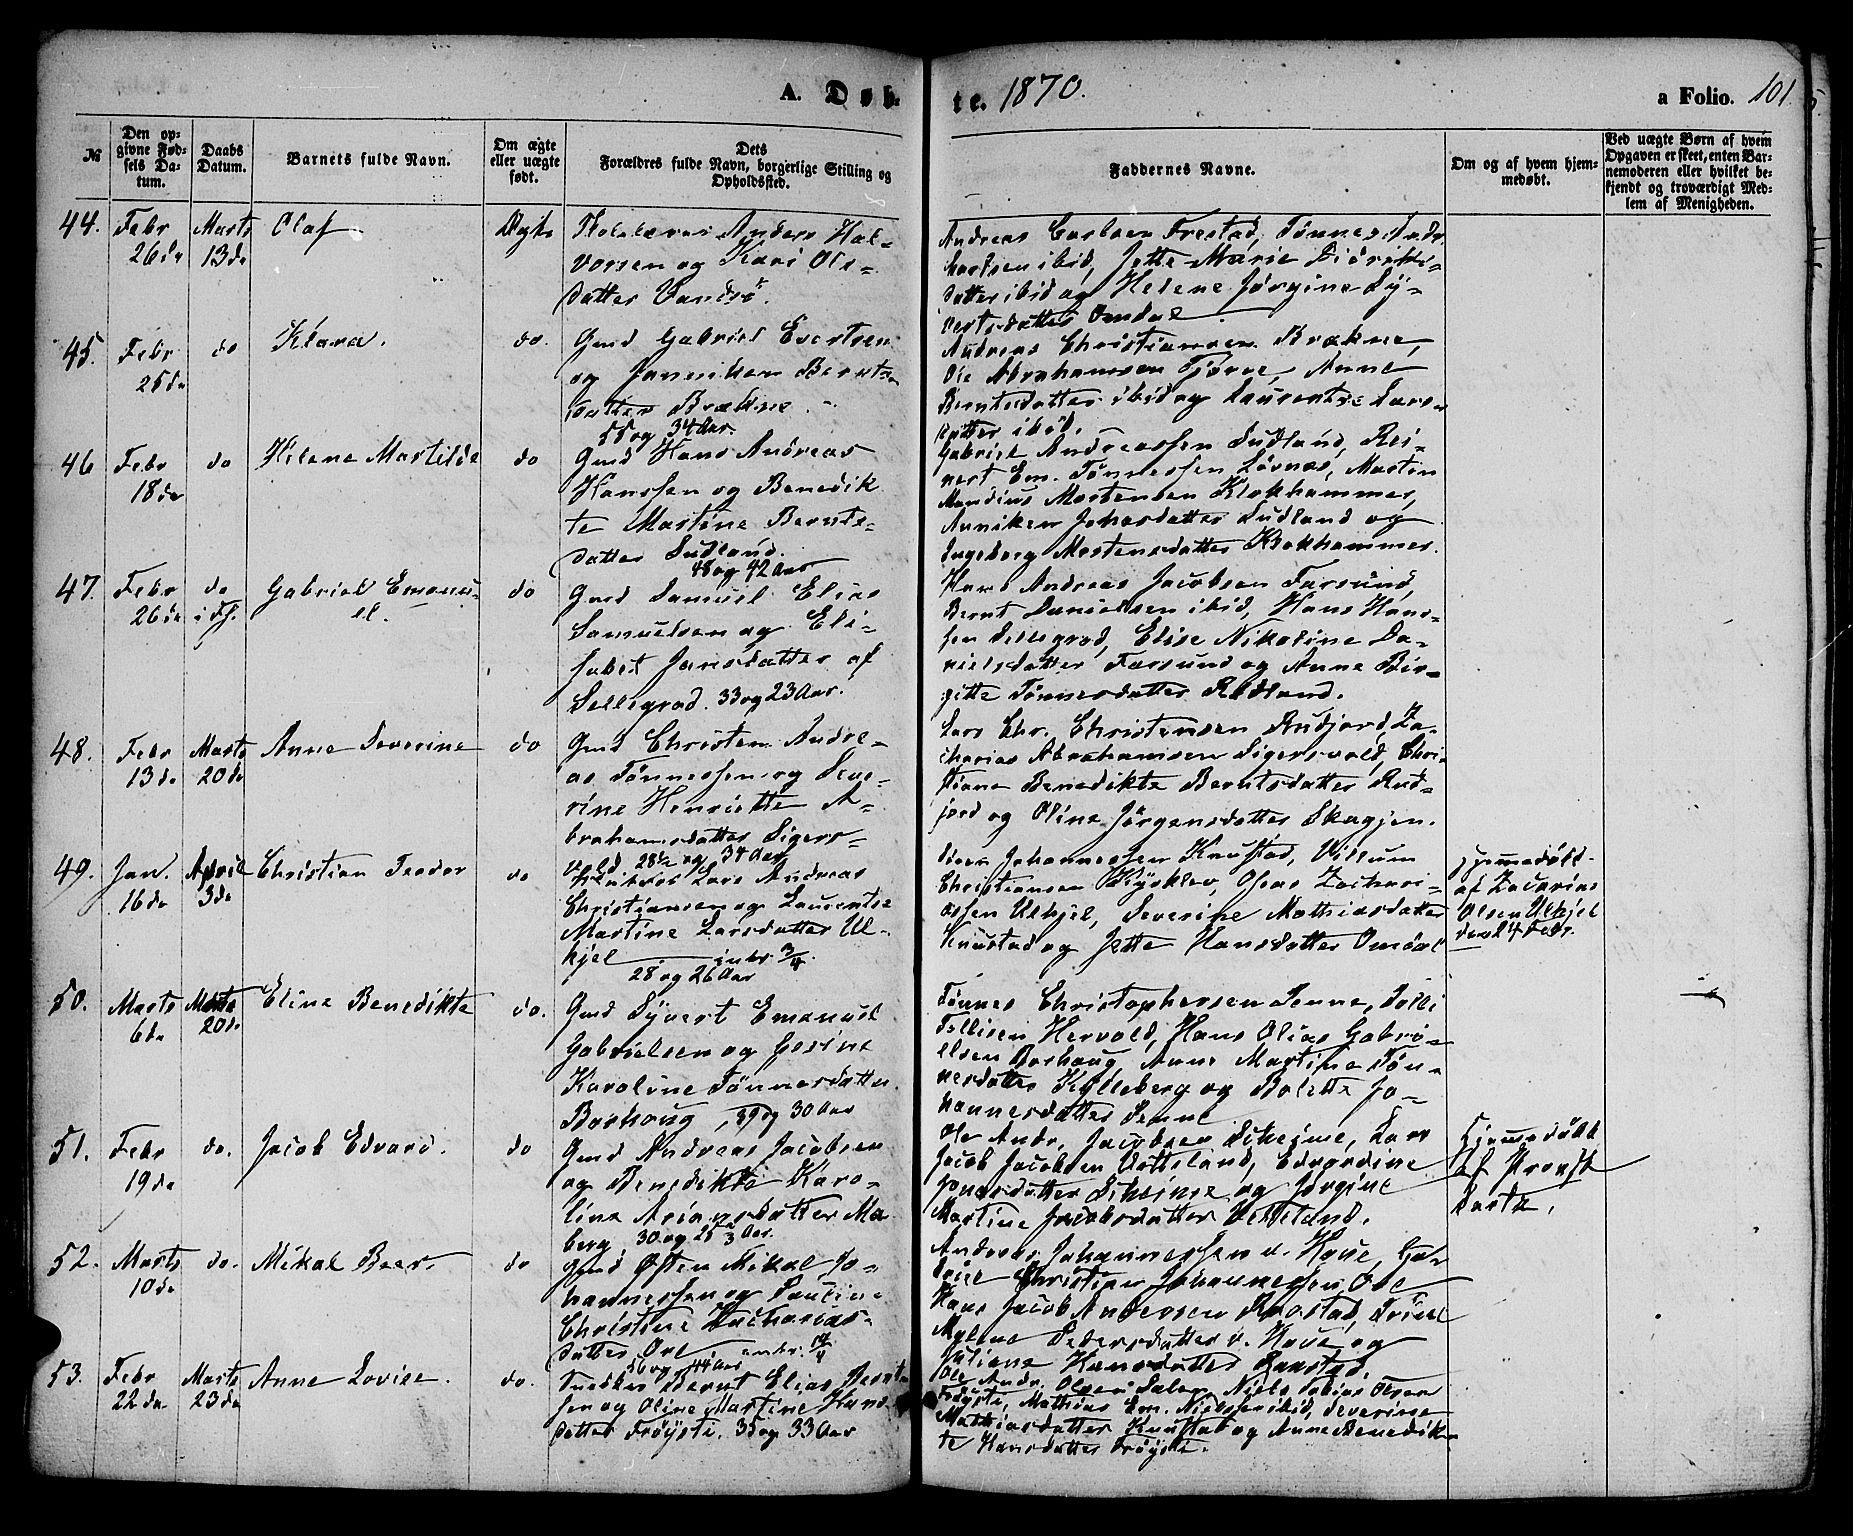 A. Døb-
te. 1870.
a Folio. 101.
№
Den op-
givne Fød-
sels Da-
tum.
Daabs
Datum.
Barnets fulde Navn.
Om ægte
eller uægte
født.
Dets
Forældres fulde Navn, borgerlige Stilling og
Opholdssted.
Faddernes Navne.
Om og af hvem hjem-
medøbt.
Ved uægte Børn af hvem
Opgaven er skeet, enten Bar-
nemoderen eller hvilket be-
kjendt og troværdigt Med-
lem af Menigheden.
44. Febr 26de
Marts 13de
Olaf
Ægte
Skolelærer Anders Hal-
vorsen og Kari Ols-
datter Vandsø.
Andreas Carlsen Frestad, Tønnes Andr.
ibid, Jette Marie Didriks-
datter ibid og Helene Jørgine Sy-
vertsdatter Omdal
45. Febr 25de
do
Klara.
do.
Gmd Gabriel Evertsen
og Janniken Bernts-
datter Brækne.
55 og 34 Aar.
Andreas Christiansen Brækne,
Ole Abrahamsen Tjørve, Anne
Berntsdatter ibid og Laurentse Lars-
datter ibid.
46 Febr 18de
do
Helene Martilde
do
Gmd Hans Andreas
Hanssen og Benedik
te Martine Bernts-
datter Sudland.
48 og 42 Aar
Gabriel Andreassen Sudland, Rei-
nert Em. Tønnessen Lovnes, Martin
Mandius Mortensen Klokhammer,
Anniken Johasdatter Sudland og
Ingeborg Mortensdatter Klokhammer.
47. Febr 26de
do i Df.
Gabriel Emanu-
el.
do
Gmd Samuel Elias
Samuelsen og Eli-
sabet Jansdatter af
Sellegrod. 33 og 23 Aar.
Hans Andreas Jacobsen Farsund,
Bernt Danielsen ibid, Hans Hans-
sen Sellegrod, Elise Nikoline Da-
nielsdatter Farsund og Anne Bir-
gitte Tønnesdatter Rødland.
48. Febr 13de
Marts 20de
Anne Severine
do
Gmd Christen Andre-
as Tønnessen og Seve-
rine Henriette A-
brahamsdatter Sigers-
vold 28½ og 34 Aar
Lars Chr. Christensen Rudjord, Za-
charias Abrahamsen Sigersvold, Chri-
stiane Benedikte Berntsdatter Rud-
jord og Oline Jørgensdatter Skagjen.
49. Jan. 16de
April 3de
Christian Teodor
do
Lars Andreas
Christiansen og Laurentse
Martine Larsdatter Ul-
kjel intr. 3/4.
28 og 26 Aar
Johannessen Knustad, Villum
Christiansen Kysklev, Osias Zachari-
assen Ulkjel, Severine Mathiasdatter
Knustad og Jette Hansdatter Omdal
Hjemmedøbt
af Zacarias
Olsen Ulkjel
den 14 Febr.
50. Marts 6de
Marts 20de
Eline Benedikte
do.
Gmd Syvert Emanuel
Gabrielsen og Gesine
Karoline Tønnesdatter
Borhoug, 39 og 30 Aar
Tønnes Christophersen Penne, Tolli
Tollisen Hervold, Hans Olias Gabri-
elsen Borhoug, Anne Martine Tøn-
nesdatter Kylleberg og Bolette Jo-
hannesdatter Penne
51. Febr 19de
do.
Jacob Edvard.
do
Gmd Andreas Jacobsen
og Benedikte Karo-
line Asiansdatter Ma
berg 30 og 25 2/3 Aar.
Ole Andr. Jacobsen Skeime, Lars
Jacob Jacobsen Vatteland, Edvardine
Jonasdatter Skeime og Jørgine
Martine Jacobsdatter Vetteland.
Hjemmedøbt
af Provst
Darte.
52. Marts 10de
do.
Mikal Beer.
do
Gmd Osten Mikal Jo-
hannessen og Pauline
Christine Zacharias-
datter Ore, intr. 17/4
56 og 44 Aar
Andreas Johannessen v. Haue, Ga-
briel Christian Johannessen Ore
Hans Jacob Andersen Ranstad, Trine
Malene Pedersdatter v. Haue og
Juliane Hansdatter Ranstad.
53. Febr 22de
Marts 23de
Anne Lovise.
do.
Snedker Bernt Elias Bernt-
sen og Oline Martine Hans
datter Frøysti. 35 og 33 Aar
Ole Andr. Olsen Dalen, Niels Tobias Olsen
Frøysti, Mathias Em. Nielsen ibid, Severine
Mathiasdatter Knustad og Anne Benedik-
te Hansdatter Frøysti.